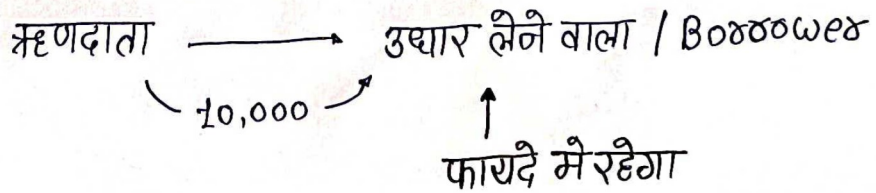 ऋणदाता → उधार लेने वाला / Borrower
10,000
↑
फायदे मे रहेगा